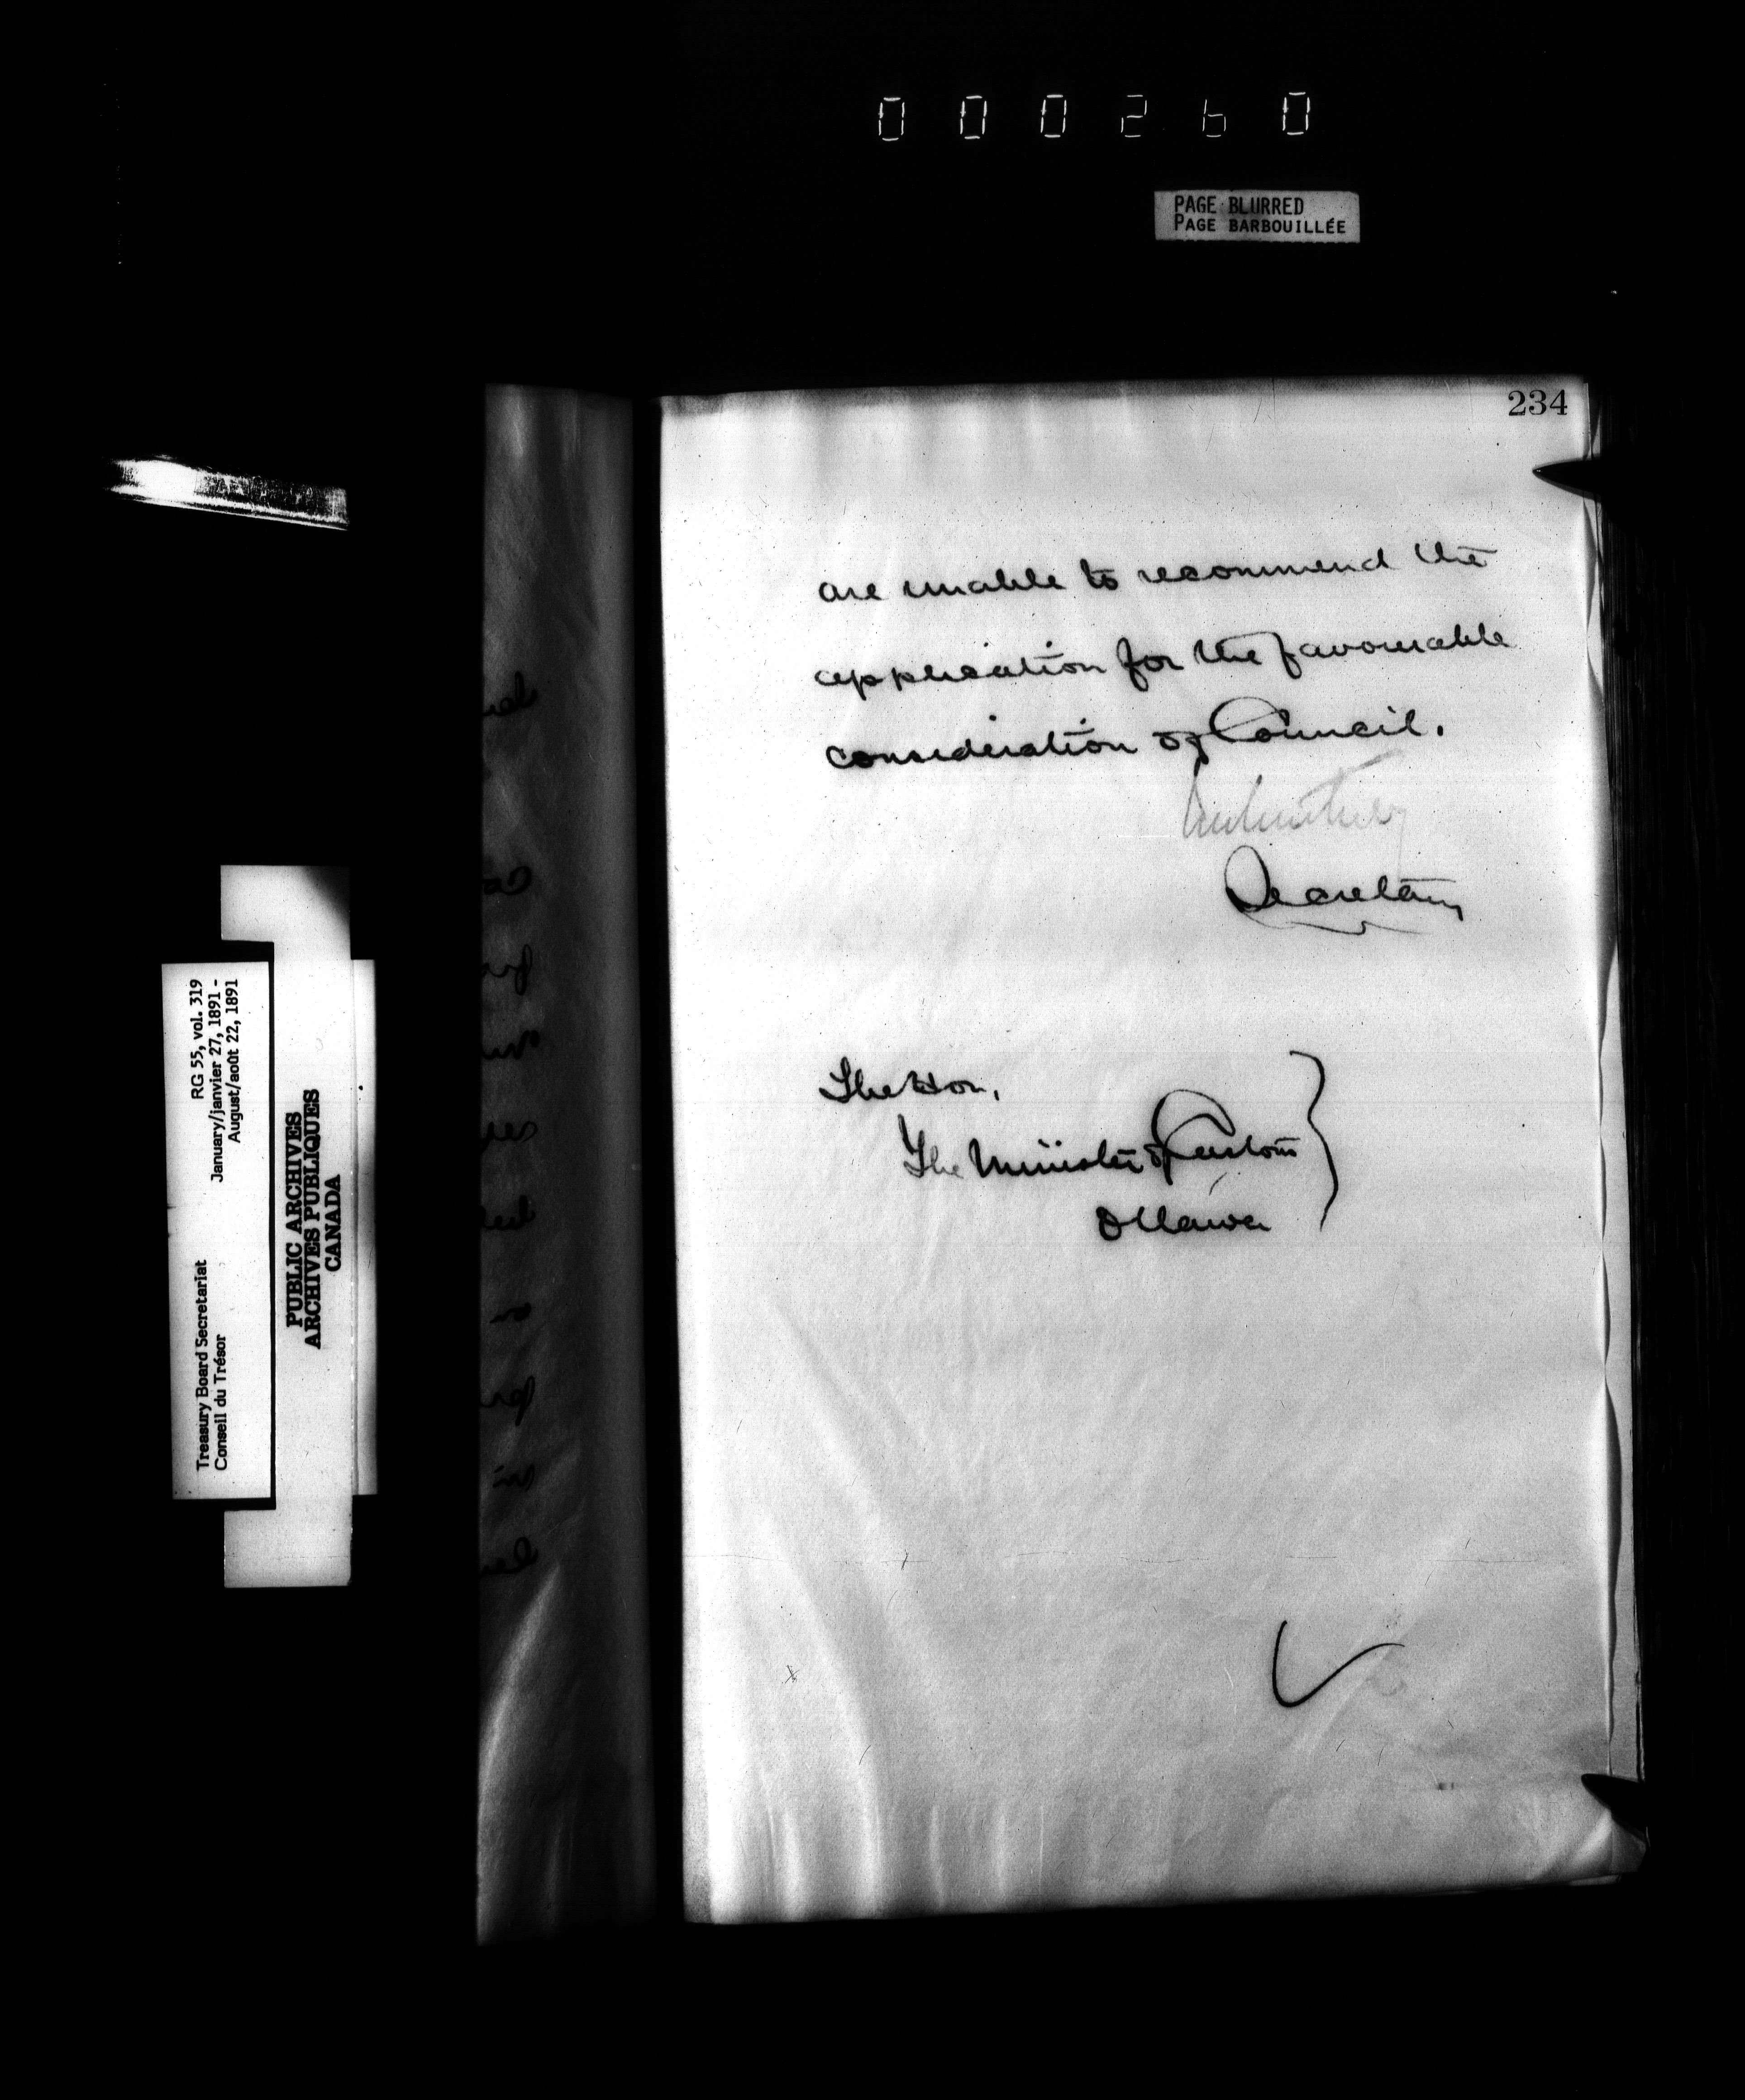 000260
PAGE BLURRED
PAGE BARBOUILLÉE
234
are unable to recommend the
application for the favourable
consideration of Council.
Secretary
The Hon,
The Minister of Customs
Ottawa
Treasury Board Secretariat RG 55, vol. 319
Conseil du Trésor January/janvier 27, 1891 -
August/août 22, 1891
PUBLIC ARCHIVES
ARCHIVES PUBLIQUES
CANADA